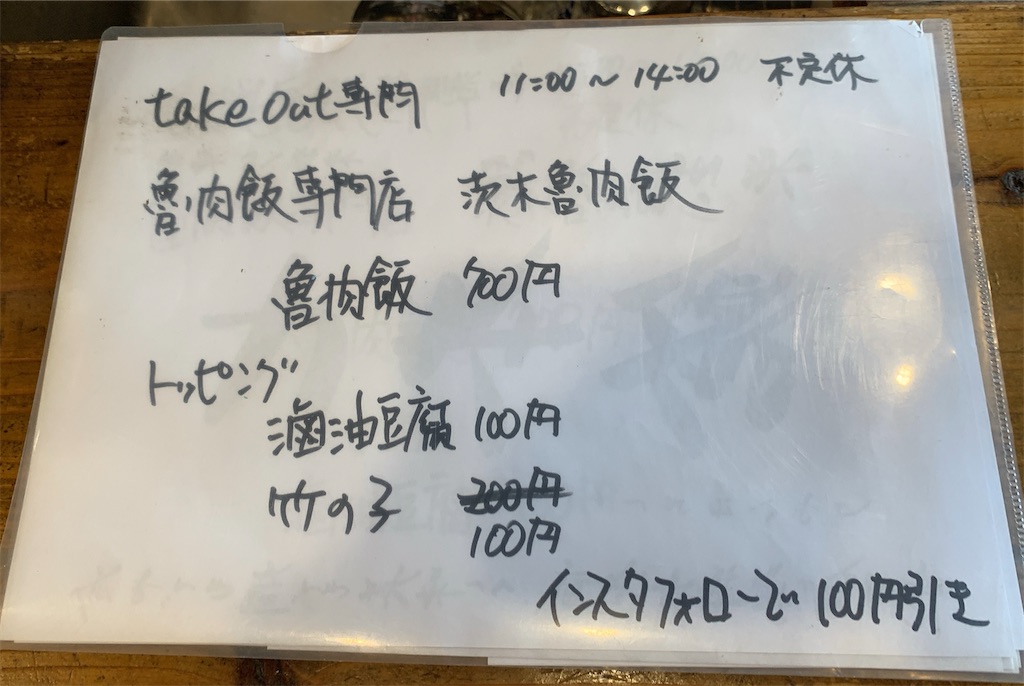 take out専門 11:00～14:00 不定休
魯肉飯専門店 茨木魯肉飯
魯肉飯 700円
トッピング
滷油豆腐 100円
竹の子 200円
100円
インスタフォローで 100円引き